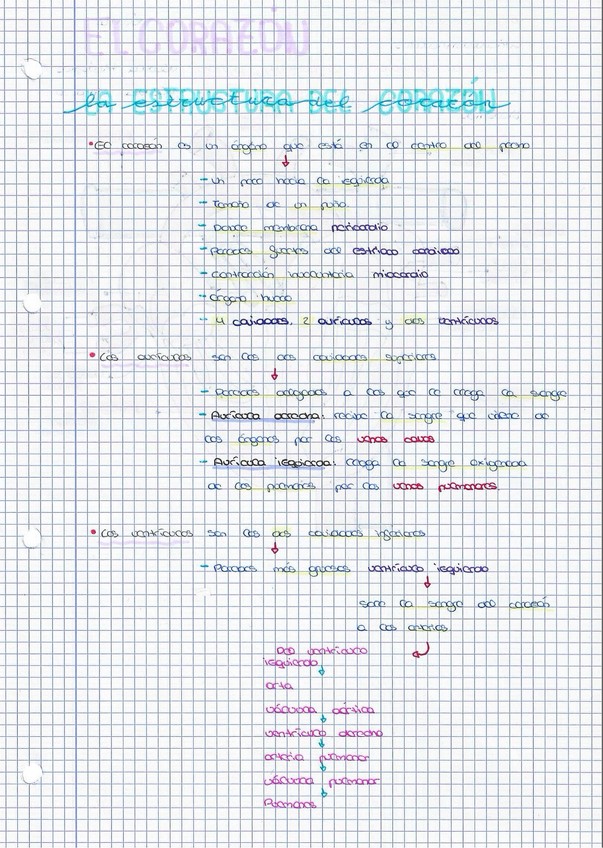 EL CORAZÓN
la estructura del corazón
LA ESTRUCTURA DEL CORAZÓN
• El corazón es un órgano que está en el centro del pecho
- un poco hacia la izquierda
- Tamaño de un puño
- Doble membrana pericardio
- Paredes gruesas del estriado cardiaco
- Contracción involuntaria miocardio
- Órgano hueco
- 4 cavidades, 2 aurículas y dos ventrículos
• Las aurículas son las dos cavidades superiores
- Paredes delgadas a las que le llega la sangre
- Aurícula derecha: recibe la sangre que viene de
los órganos por las venas cavas
- Aurícula izquierda: llega la sangre oxigenada
de los pulmones por las venas pulmonares.
• Los ventrículos son las dos cavidades inferiores
- Paredes más gruesas ventrículo izquierdo
sale la sangre del corazón
a las arterias
Del ventrículo
izquierdo
orta
válvula aórtica
ventrículo derecho
arteria pulmonar
válvula pulmonar
Pulmones